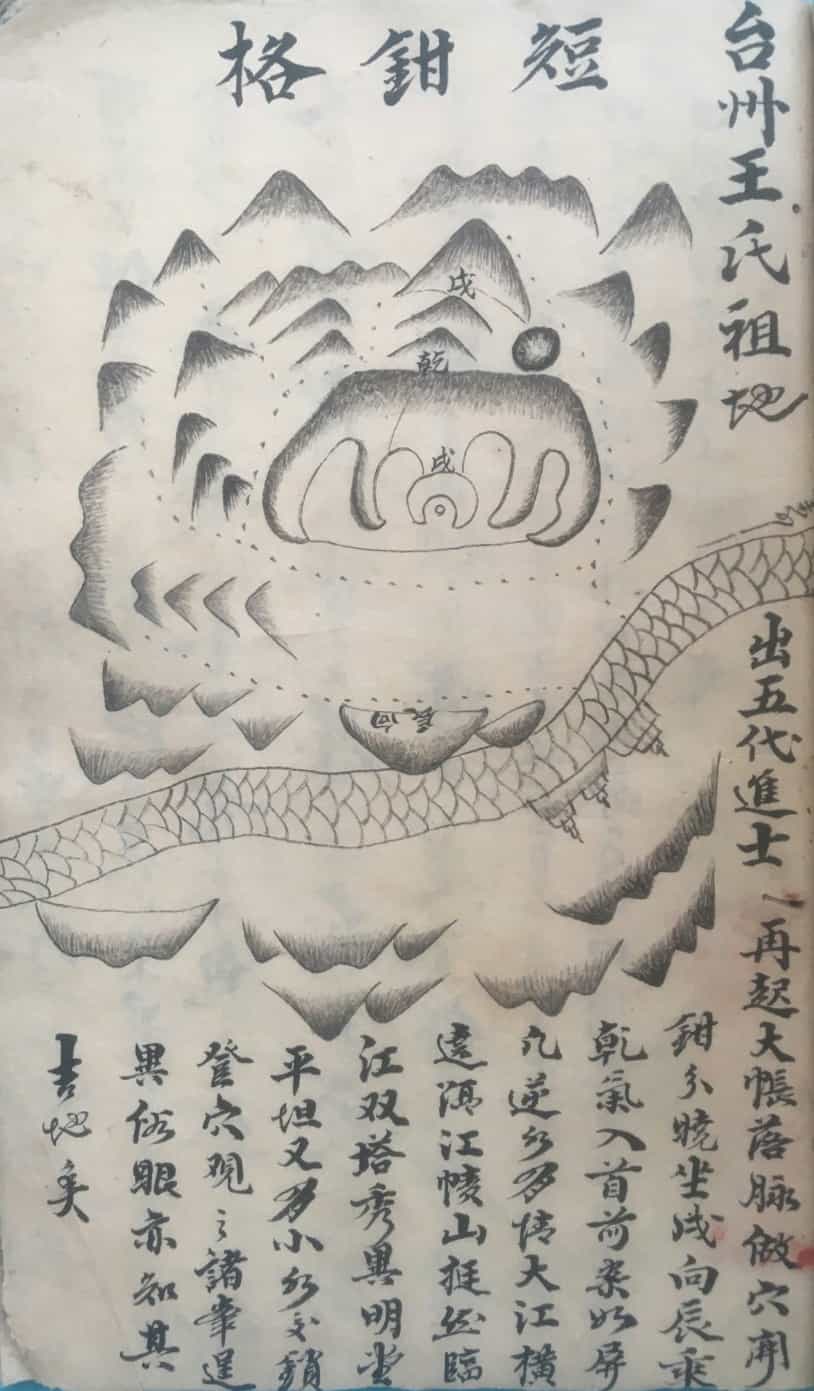 台州王氏祖地
短鉗格
戌
乾
戌
辰向
出五代進士
再起大帳落脉做穴開
鉗分曉坐戌向辰乘
乾氣入首前案如屏
几逆水多情大江橫
遶江幛山挺然臨
江双塔秀異明堂
平坦又多小水交鎖
登穴观之諸峯逞
異俗眼亦知其
吉地矣